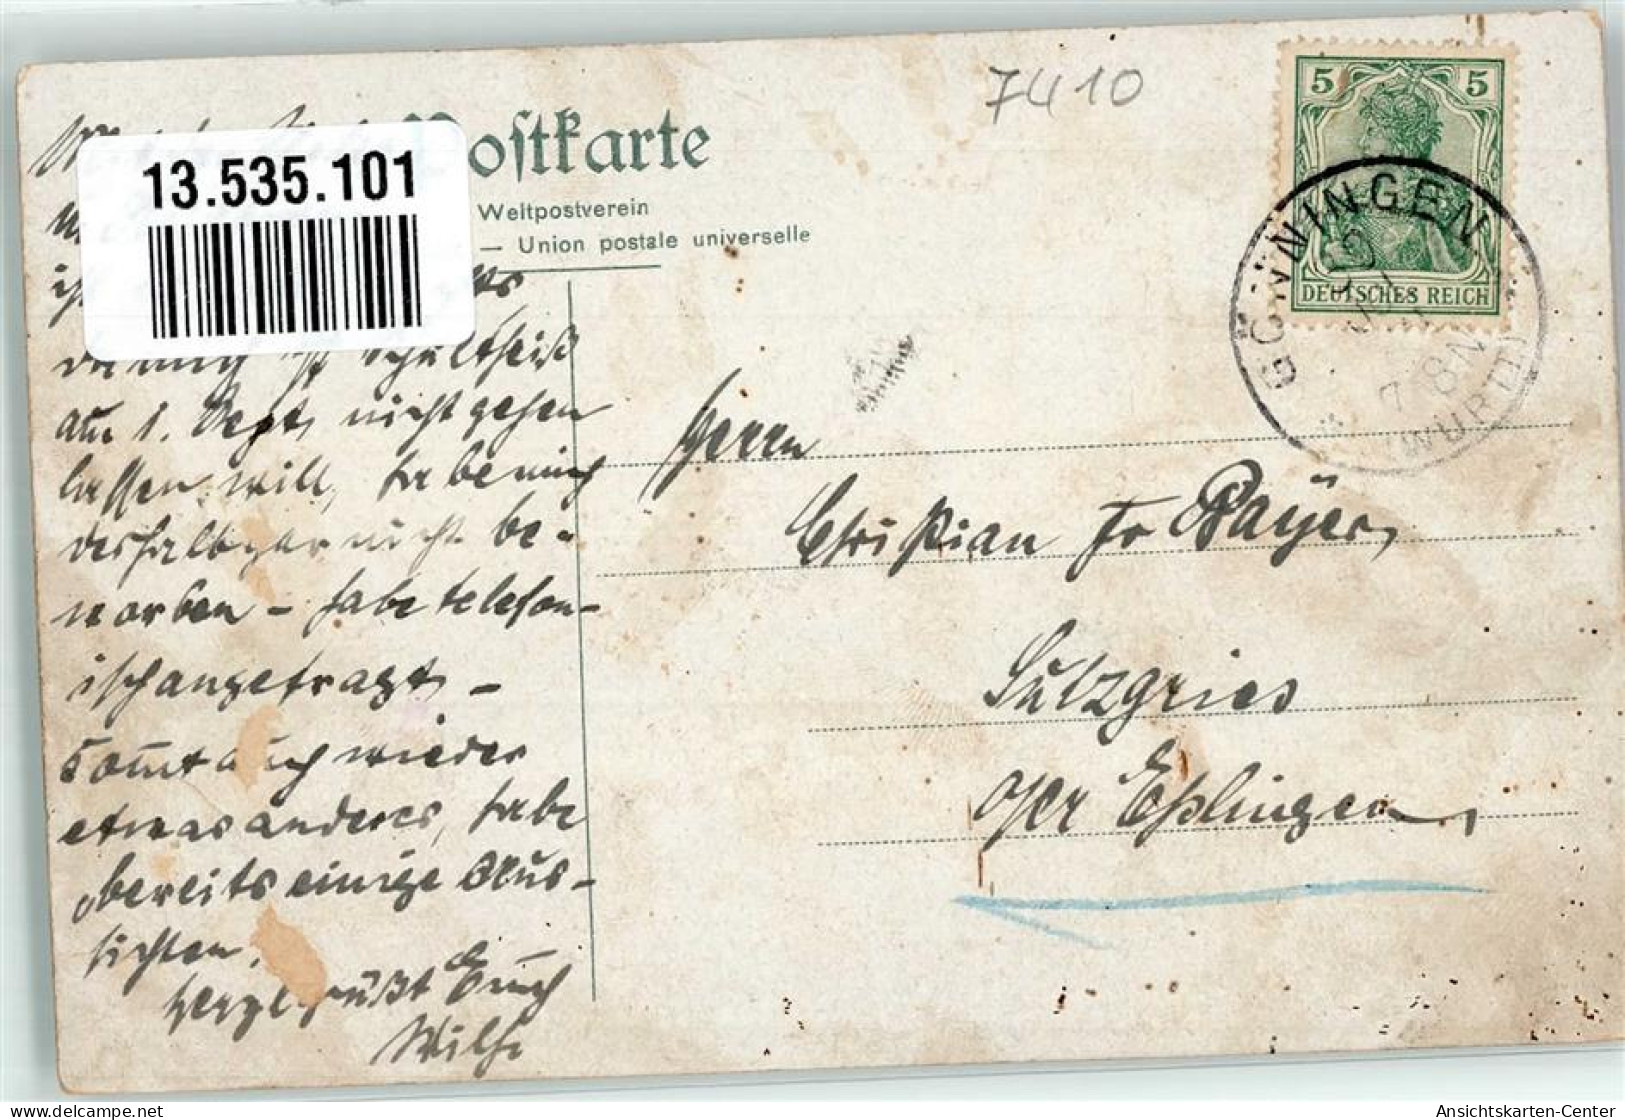 7410
Postkarte
13.535.101
Weltpostverein
— Union postale universelle
5 5
DEUTSCHES REICH
GÖNNINGEN
7-8N
(WÜRTT)
Schultheiß
am 1. Sept. nicht gehen
lassen will, habe mich
deshalb gar nicht be-
worben - habe telefon-
isch angefragt -
kommt auch wieder
etwas anderes, habe
bereits einige Aus-
sichten.
Herzl grüßt Euch
Wilh
Herrn
Christian Fr Bayer,
Sulzgries
Esslingen
Ansichtskarten-Center